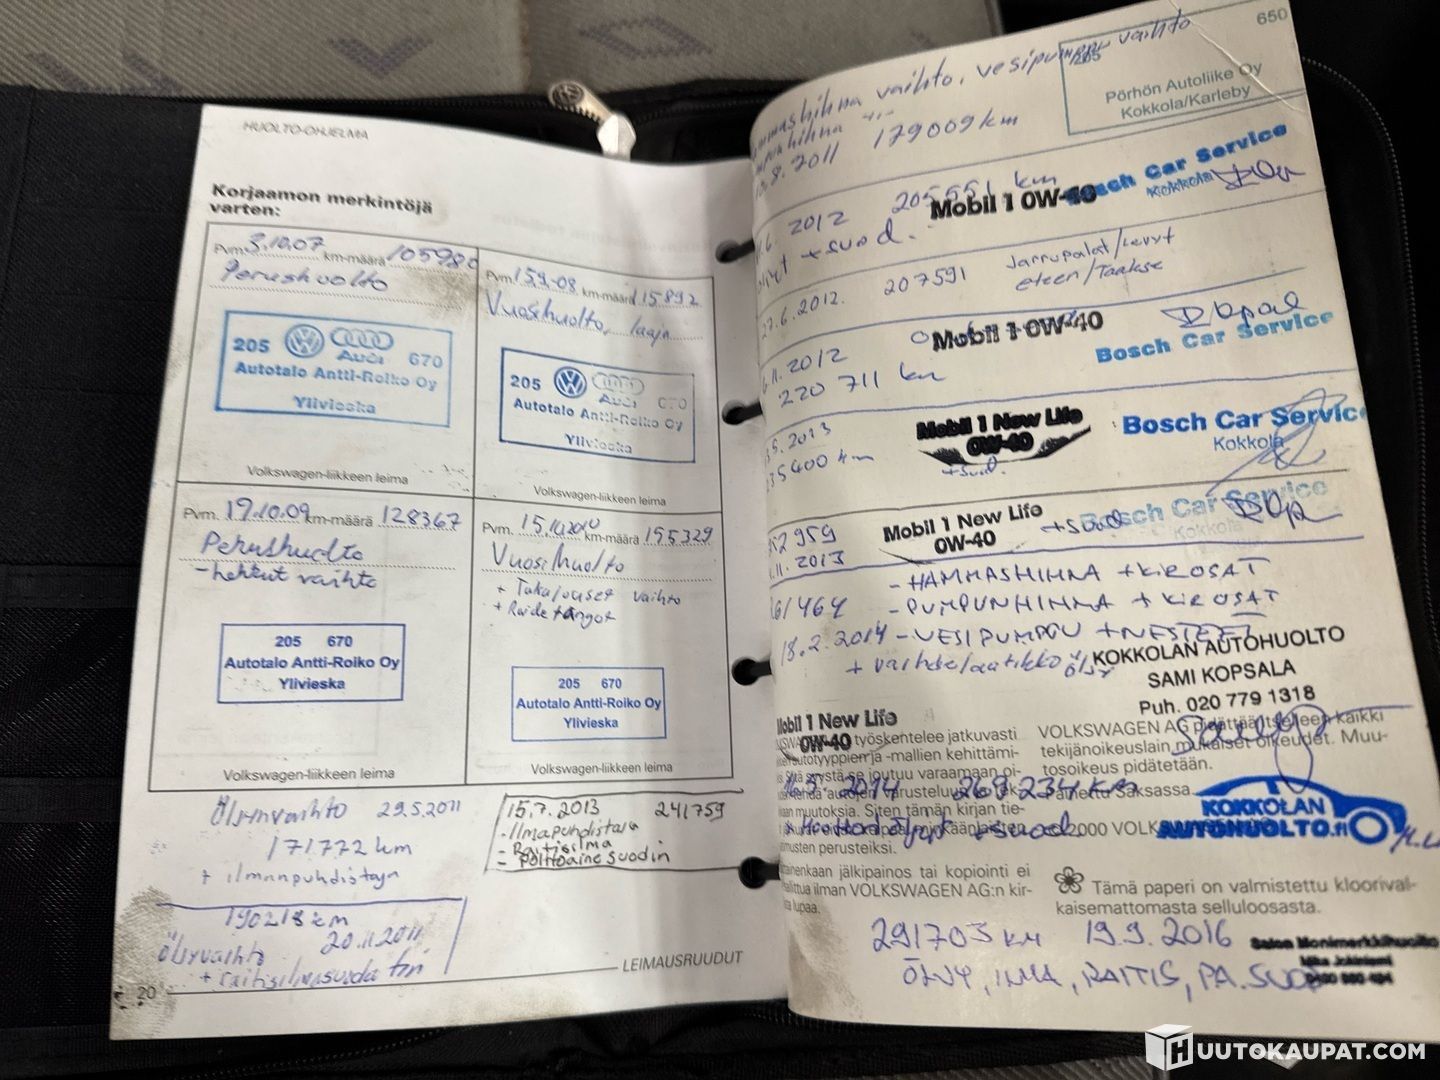 HUOLTO-OHJELMA
Korjaamon merkintöjä
varten:
Pvm. 3.10.07 km-määrä 105980
Perushuolto
205 Audi 670
Autotalo Antti-Roiko Oy
Ylivieska
Volkswagen-liikkeen leima
Pvm. 159-08 km-määrä 115892
Vuosihuolto, laaja
205 Audi 670
Autotalo Antti-Roiko Oy
Ylivieska
Volkswagen-liikkeen leima
Pvm. 19.10.09 km-määrä 128367
Perushuolto
- hehkut vaihto
205 670
Autotalo Antti-Roiko Oy
Ylivieska
Volkswagen-liikkeen leima
Pvm. 15.10.2010 km-määrä 155329
Vuosihuolto
+ Takajouset vaihto
+ Raidetangot
205 670
Autotalo Antti-Roiko Oy
Ylivieska
Volkswagen-liikkeen leima
Öljynvaihto 29.5.2011
171.772 km
+ ilmanpuhdistaja
190218 km
Öljyvaihto 20.11.2011
+ raitisilmasuodatin
15.7.2013 241759
- Ilmapuhdistava
- Raitisilma
- Polttoainesuodin
LEIMAUSRUUDUT
20
650
205
Pörhön Autoliike Oy
Kokkola/Karleby
vaihto, vesipumppu vaihto
8.2011 179009 km
6.2012 205551 km
+ suod.
Mobil 1 0W-40
Bosch Car Service
Kokkola
27.6.2012. 207591 Jarrupalat/Levyt
eteen/Taakse
11.2012
220 711 km
Mobil 1 0W-40
Bosch Car Service
5.2013
35400 km
Mobil 1 New Life
0W-40
+suod.
Bosch Car Service
Kokkola
52959
11.2013
Mobil 1 New Life
0W-40
+suod
Bosch Car Service
Kokkola
- HAMMASHIHNA + KIROSAT
261464 - PUMPUNHIHNA + KIROSAT
18.2.2014 - VESIPUMPPU + NESTEET
+ vaihdelaatikko öljy
KOKKOLAN AUTOHUOLTO
SAMI KOPSALA
Puh. 020 779 1318
Mobil 1 New Life
0W-40
työskentelee jatkuvasti
autotyyppien ja -mallien kehittämi-
Siitä syystä se joutuu varaamaan oi-
muutoksia. Siten tämän kirjan tie-
perusteiksi.
VOLKSWAGEN AG pidättää itselleen kaikki
tekijänoikeuslain mukaiset oikeudet. Muu-
tosoikeus pidätetään.
Painettu Saksassa.
2000 VOLKSWAGEN
2014 269 234 km
+ suod.
KOKKOLAN
AUTOHUOLTO.fi
jälkipainos tai kopiointi ei
sallittua ilman VOLKSWAGEN AG:n kir-
lupaa.
Tämä paperi on valmistettu kloorival-
kaisemattomasta selluloosasta.
291703 km 19.9.2016
Salon Monimerkkihuolto
Mika Jokiniemi
ÖLJY, ILMA, RAITIS, PA. SUOD
HUUTOKAUPAT.COM